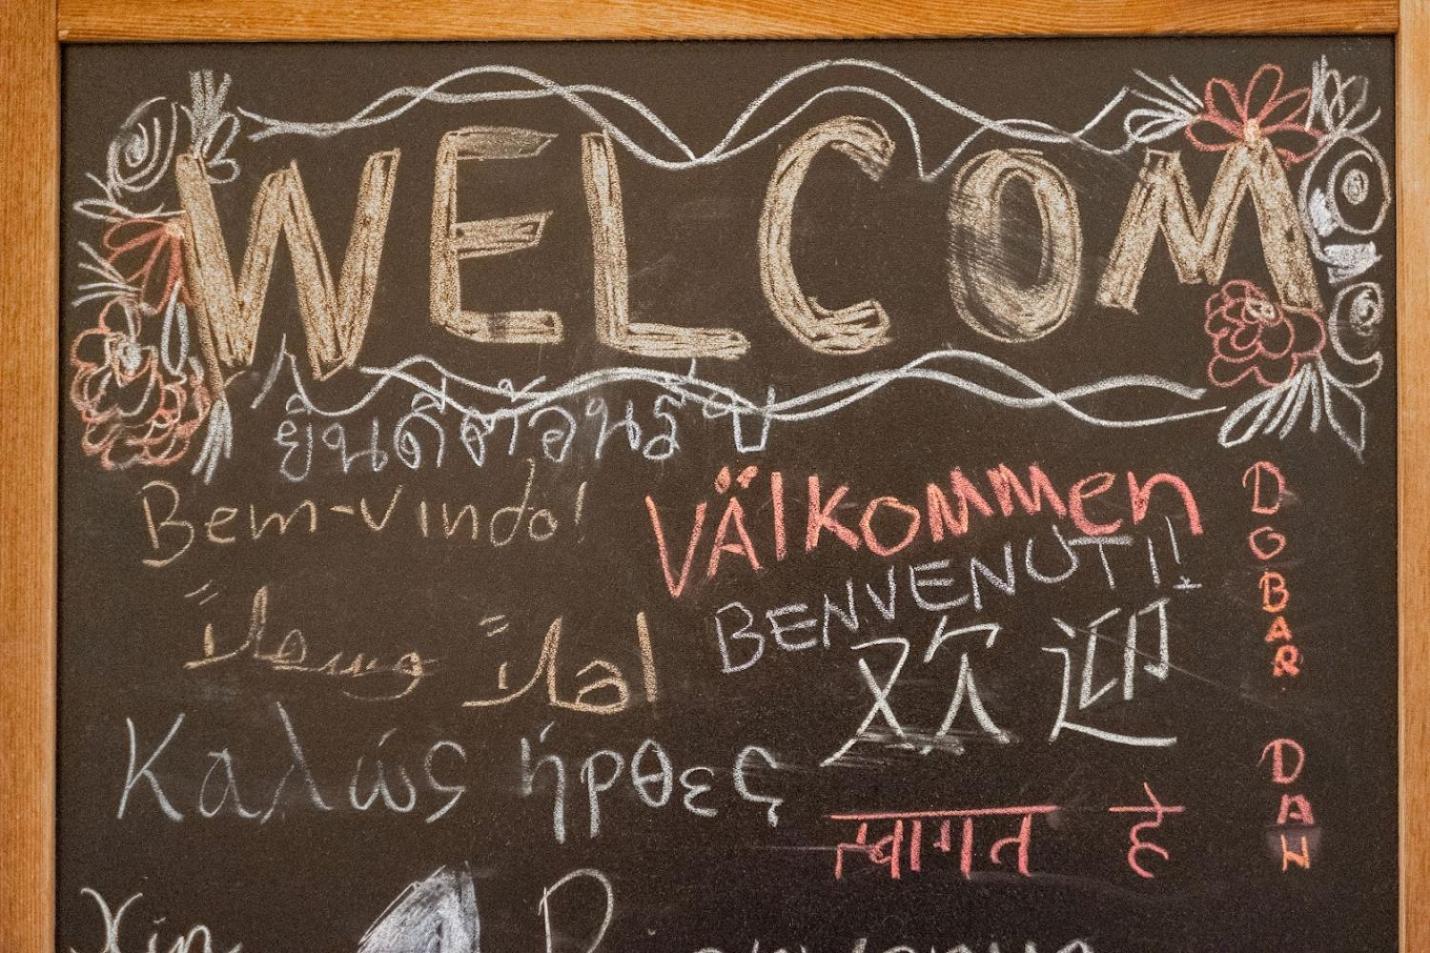 WELCOM
ยินดีต้อนรับ
Bem-vindo!
VÄLKOMMEN
BENVENUTI!
اهلاً وسهلاً
欢迎
Καλώς ήρθες
स्वागत हे
DOBAR DAN
Xin